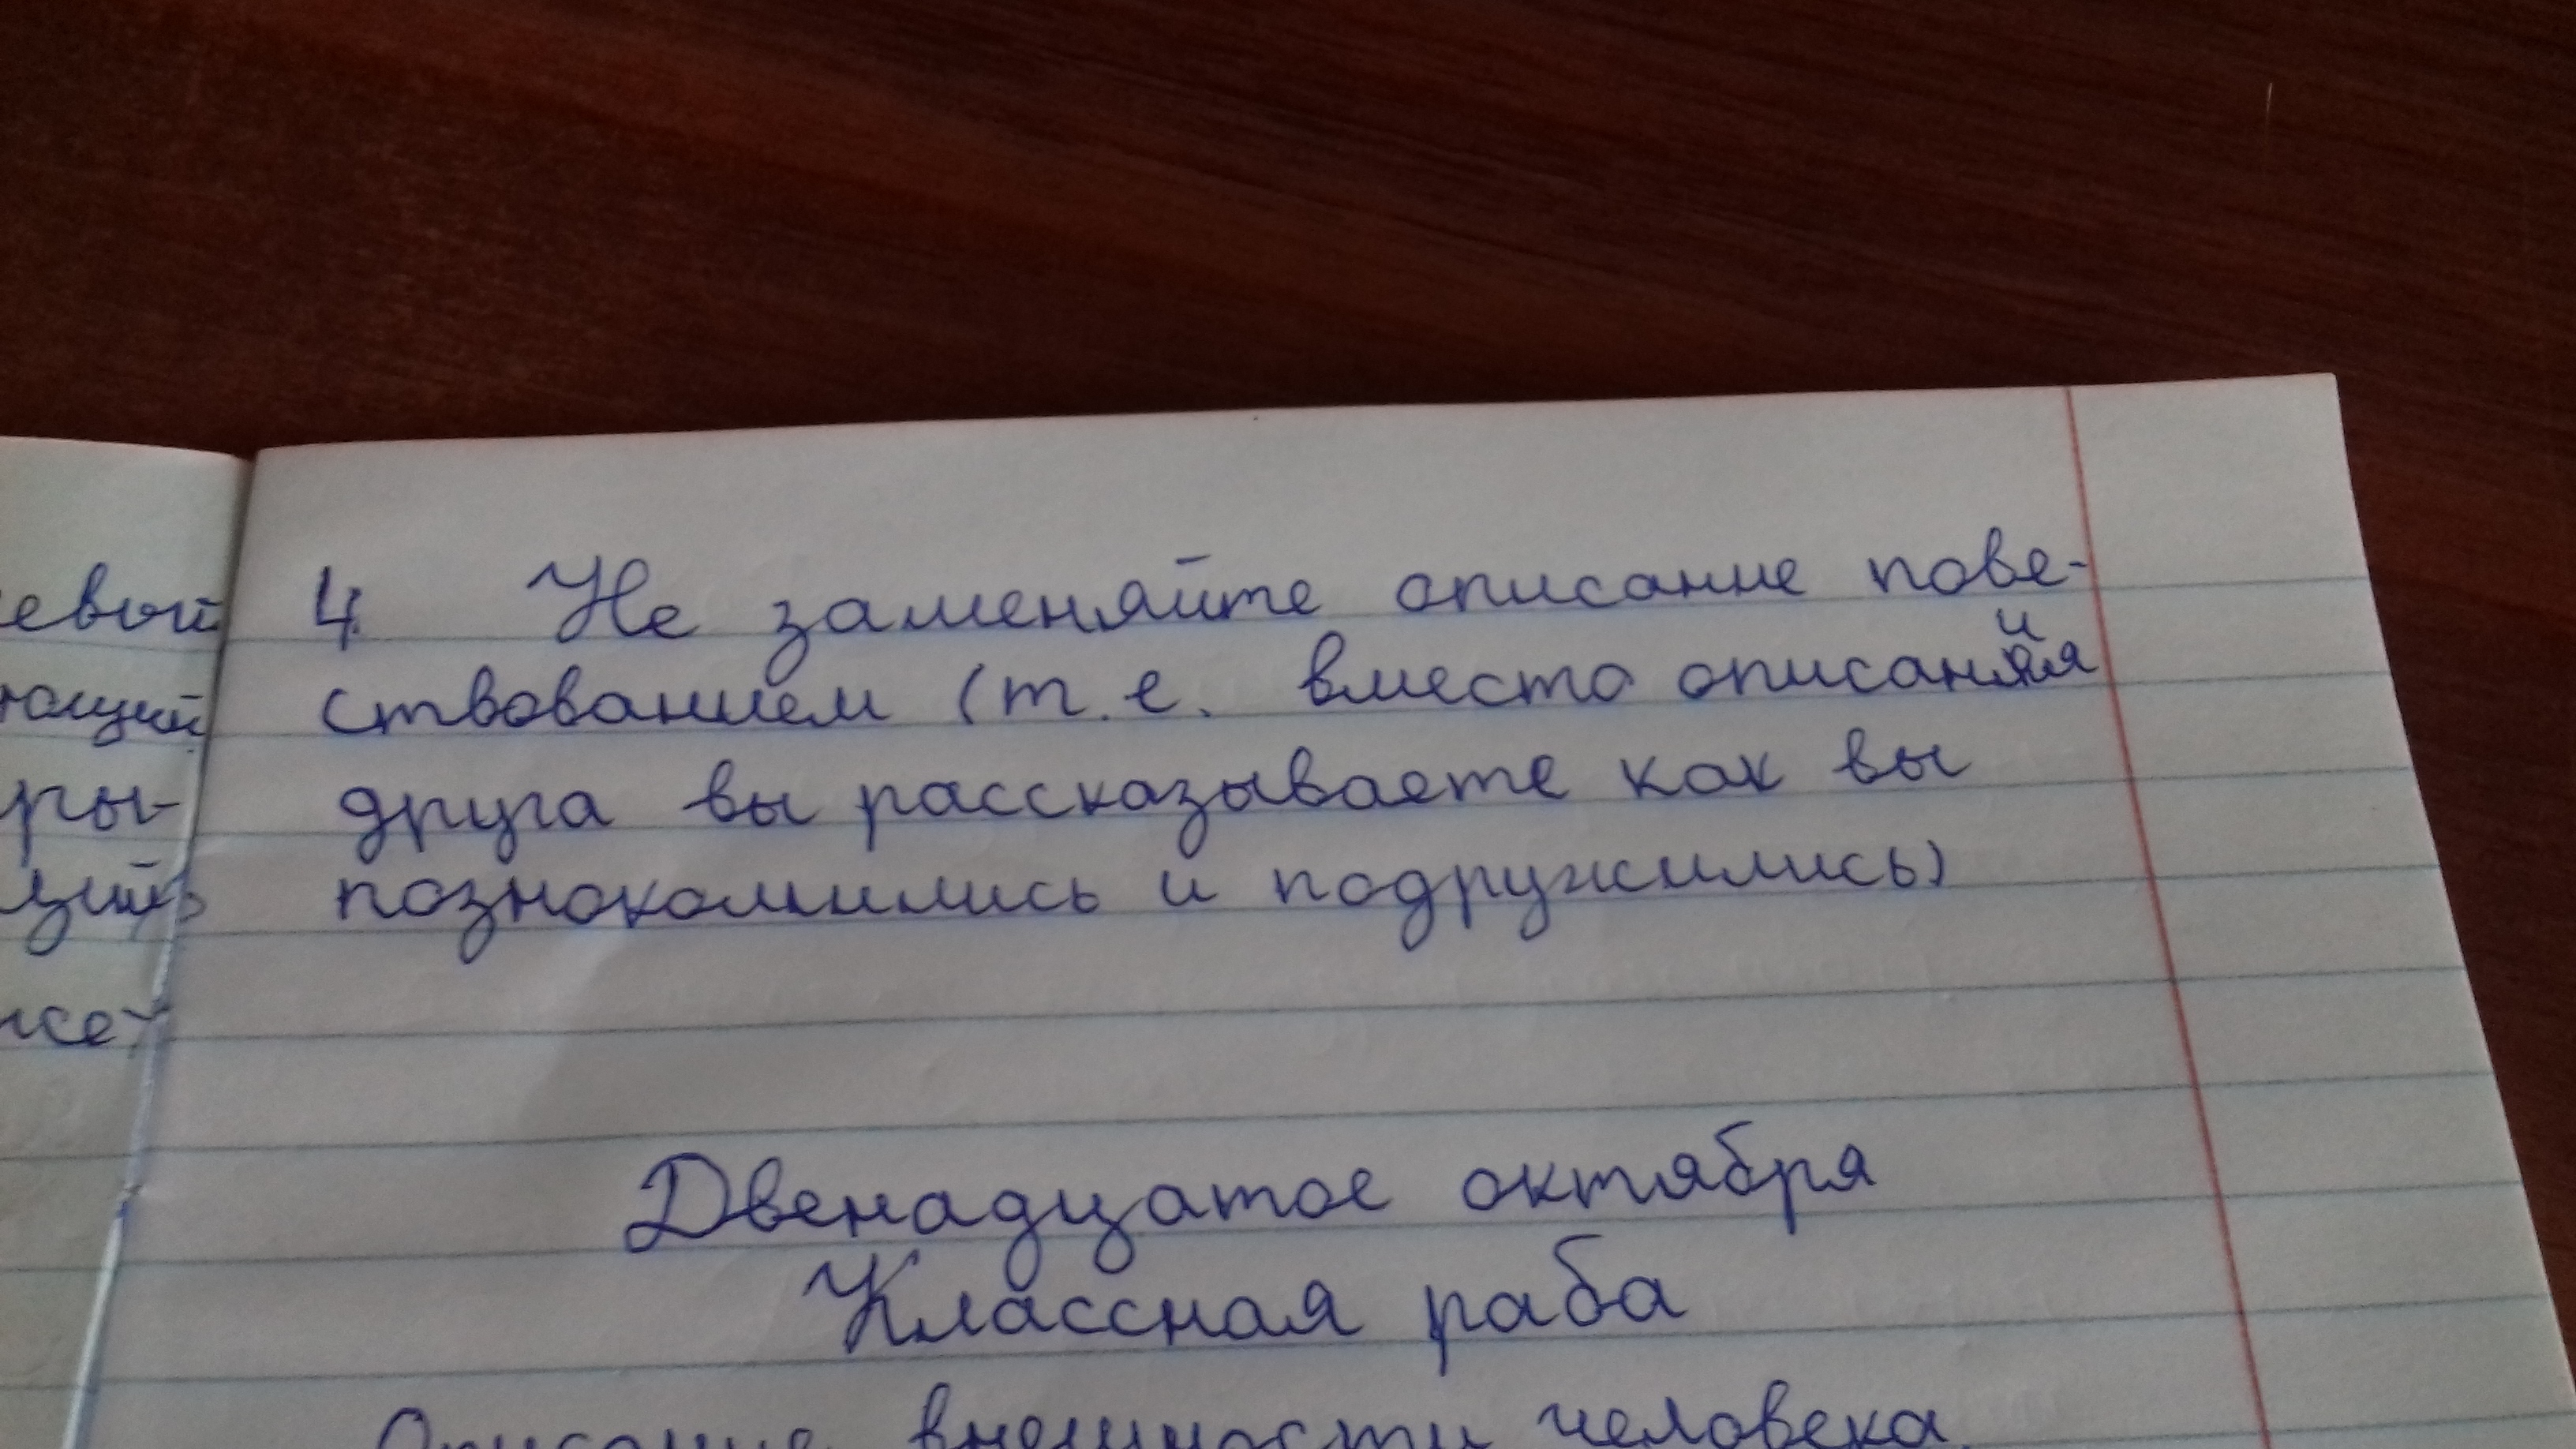 евый
ющий
ры-
4. Не заменяйте описание пове-
ствованием (т.е. вместо описания
друга вы рассказываете как вы
познокомились и подружились)
Двенадцатое октября
Классная раба
Описание внешности человека.